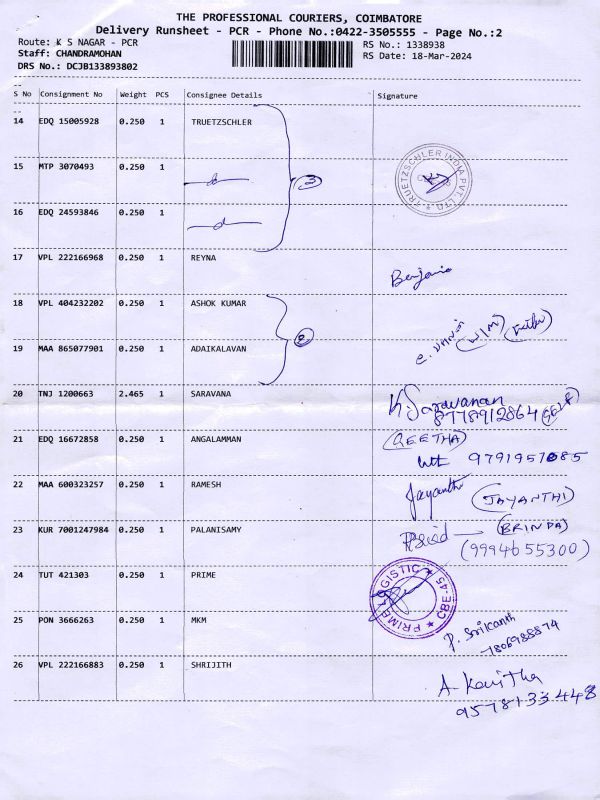 THE PROFESSIONAL COURIERS, COIMBATORE
Delivery Runsheet - PCR - Phone No.:0422-3505555 - Page No.:2
Route: K S NAGAR - PCR
RS No.: 1338938
Staff: CHANDRAMOHAN
RS Date: 18-Mar-2024
DRS No.: DCJB133893802
S No Consignment No Weight PCS Consignee Details Signature
14 EDQ 15005928 0.250 1 TRUETZSCHLER
15 MTP 3070493 0.250 1
3
TRUETZSCHLER INDIA PVT. LTD.
16 EDQ 24593846 0.250 1
17 VPL 222166968 0.250 1 REYNA
18 VPL 404232202 0.250 1 ASHOK KUMAR
2
19 MAA 865077901 0.250 1 ADAIKALAVAN
20 TNJ 1200663 2.465 1 SARAVANA K. Saravanan
8778912864 (SELF)
21 EDQ 16672858 0.250 1 ANGALAMMAN (GEETHA)
9791957085
22 MAA 600323257 0.250 1 RAMESH Jayanthi (JAYANTHI)
23 KUR 7001247984 0.250 1 PALANISAMY (BRINDA)
(9994655300)
24 TUT 421303 0.250 1 PRIME PRIME LOGISTIC CBE-45
25 PON 3666263 0.250 1 MKM P. Srikanth
7806988874
26 VPL 222166883 0.250 1 SHRIJITH A. Kavitha
9578133448